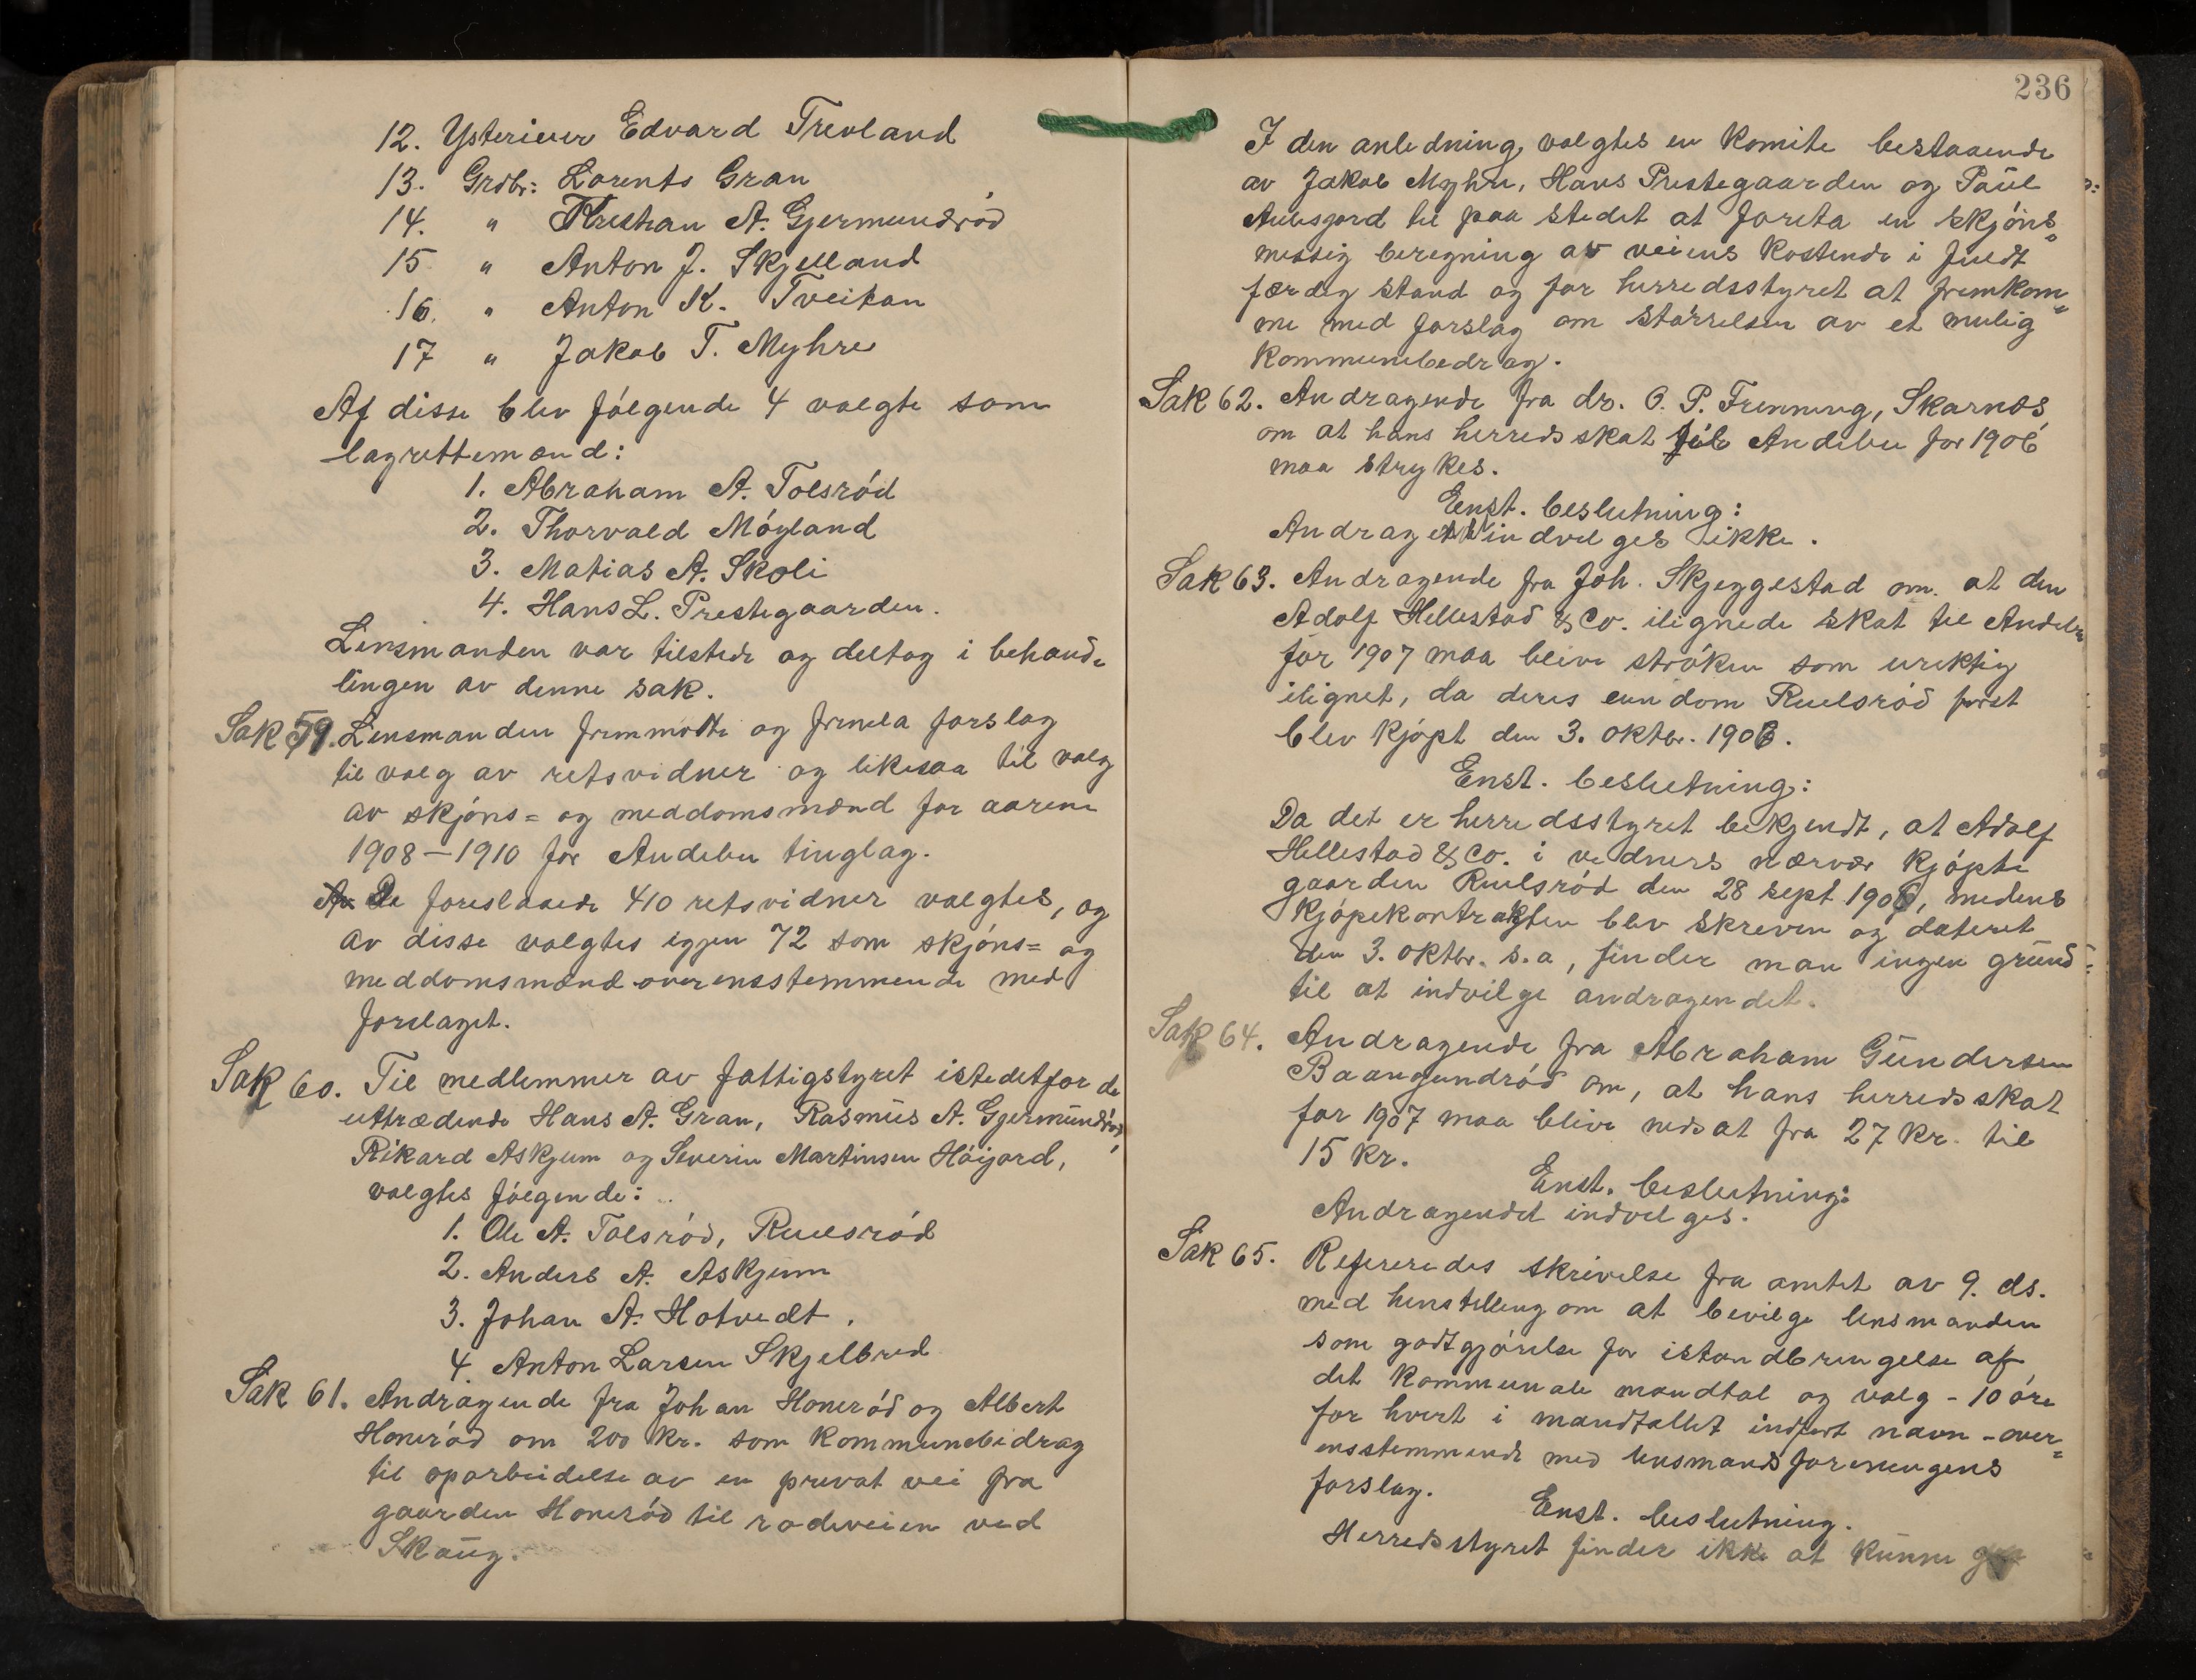 12. Ysterieier Edvard Trevland
13. Grdbr: Lorents Gran
14. " Kristian A. Gjermundrød
15 " Anton J. Skjelland
16. " Anton K. Tveitan
17 " Jakob T. Myhre
Af disse blev følgende 4 valgte som
lagrettemænd:
1. Abraham A. Tolsrød
2. Thorvald Møyland
3. Matias A. Skoli
4. Hans L. Prestegaarden.
Lensmanden var tilstede og deltog i behand-
lingen av denne sak.
Sak 59. Lensmanden fremmøtte og fremla forslag
til valg av retsvidner og likesaa til valg
av skjøns= og meddomsmænd for aarene
1908-1910 for Andebu tinglag.
De foreslaaede 410 retsvidner valgtes, og
av disse valgtes igjen 72 som skjøns= og
meddomsmænd overensstemmende med
forslaget.
Sak 60. Til medlemmer av fattigstyret istedetfor de
uttrædende Hans A. Gran, Rasmus A. Gjermundrød,
Rikard Askjum og Severin Martinsen Høigard,
valgtes følgende:
1. Ole A. Tolsrød, Ruelsrød
2. Anders A. Askjum
3. Johan A. Hotvedt.
4. Anton Larsen Skjelbred
Sak 61. Andragende fra Johan Honerød og Albert
Honerød om 200 kr. som kommunebidrag
til oparbeidelse av en privat vei fra
gaarden Honerød til rodeveien ved
Skaug.
236
I den anledning valgtes en komite bestaaende
av Jakob Myhre, Hans Prestegaarden og Paul
Aulesgord til paa stedet at foreta en skjøns=
messig beregning av veiens kostende i fuldt
færdig stand og for herredsstyret at fremkom=
me med forslag om størrelsen av et mulig
kommunebedrag.
Sak 62. Andragende fra dr. O. P. Frenning, Skarnæs,
om at hans herredsskat til Andebu for 1906
maa strykes.
Enst. beslutning:
Andraget indvilges ikke.
Sak 63. Andragende fra Joh. Skjeggestad om at den
Adolf Hellestad & Co. ilignede skat til Andebu
for 1907 maa blive strøken som uriktig
ilignet, da deres eiendom Ruelsrød først
blev kjøpt den 3. oktbr. 1906.
Enst. beslutning:
Da det er herredsstyret bekjendt, at Adolf
Hellestad & Co. i vidners nærvær kjøpte
gaarden Ruelsrød den 28 sept 1906, medens
kjøpekontrakten blev skreven og dateret
den 3. oktbr. s.a, finder man ingen grund=
til at indvilge andragendet.
Sak 64. Andragende fra Abraham Gundersen
Baangundrød om, at hans herredsskat
for 1907 maa blive nedsat fra 27 kr. til
15 kr.
Enst. beslutning:
Andragendet indvilges.
Sak 65. Refereredes skrivelse fra amtet av 9. ds.
med henstilling om at bevilge lensmanden
som godtgjørelse for istandbringelse af
det kommunale mandtal og valg - 10 øre
for hvert i mandtallet indført navn - over=
ensstemmende med lensmandsforeningens
forslag.
Enst. beslutning.
Herredsstyret finder ikke at kunne